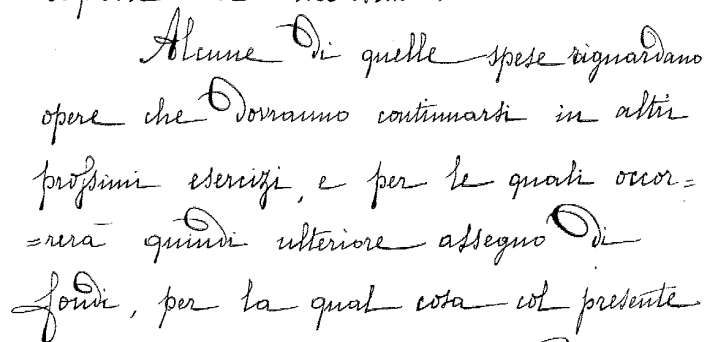 Alcune di quelle spese riguardano
opere che dovranno continuarsi in altri
prossimi esercizi, e per le quali occor=
=rerà quindi ulteriore assegno di
fondi, per la qual cosa col presente